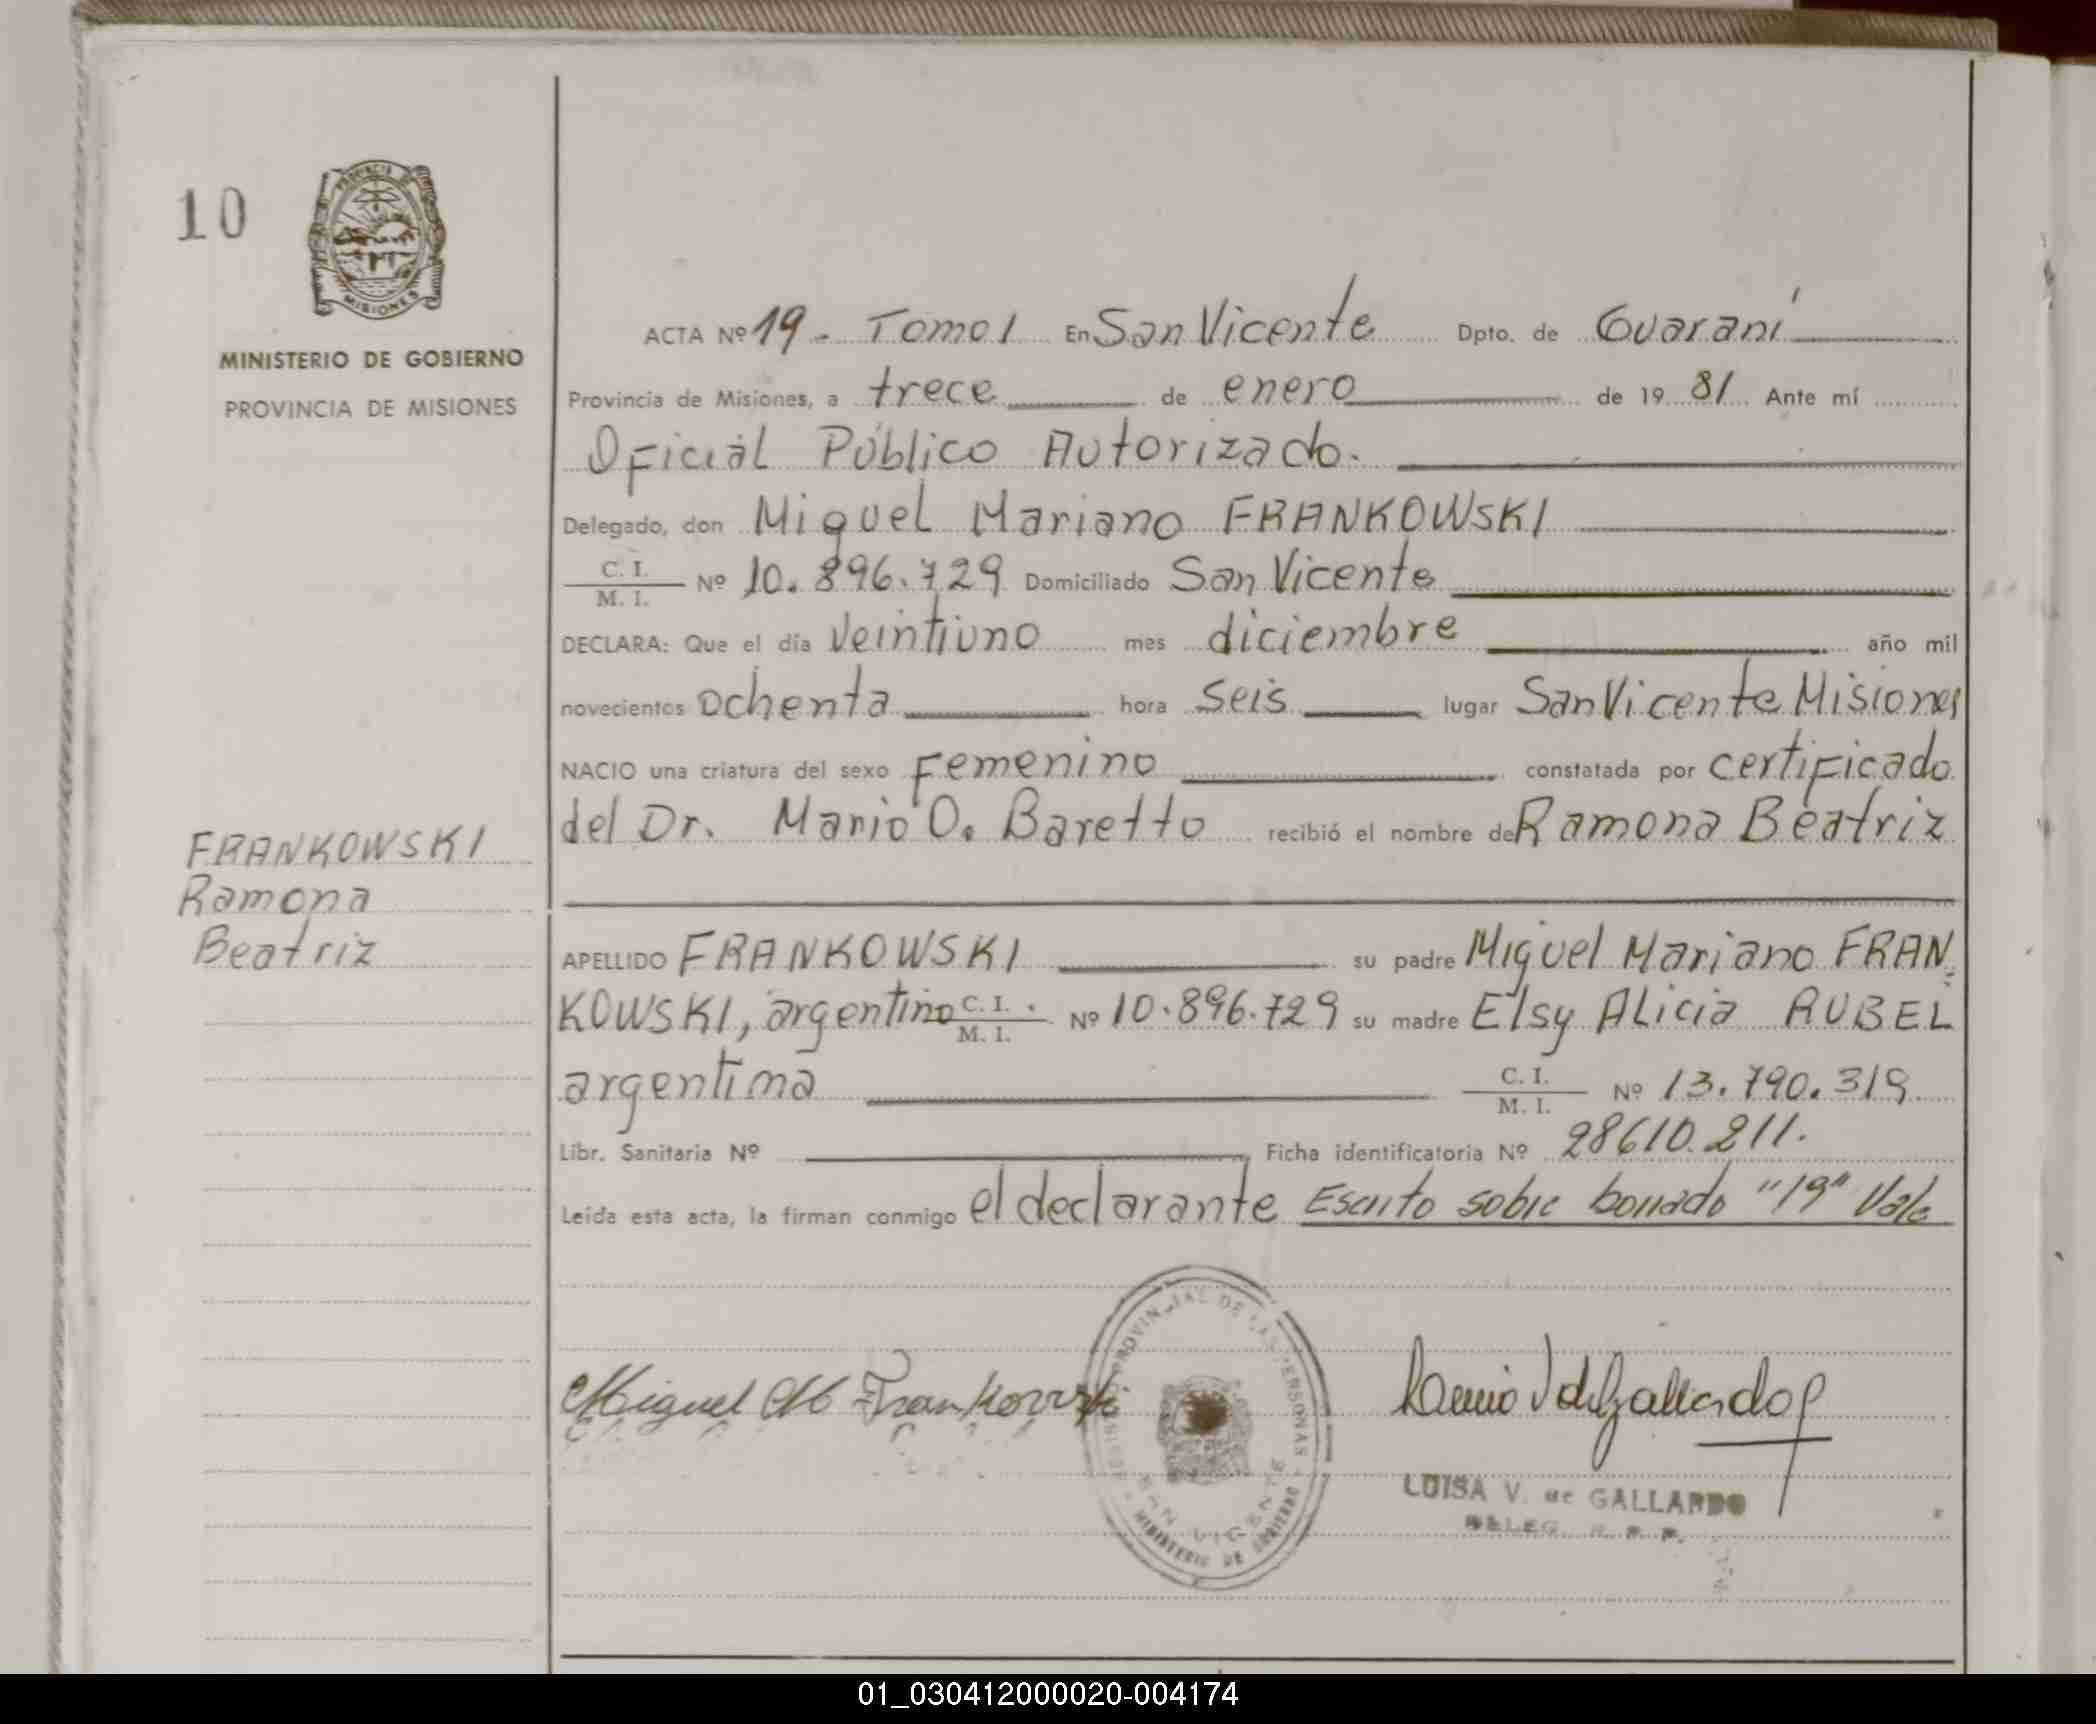 10
PROVINCIA DE
MISIONES
MINISTERIO DE GOBIERNO
PROVINCIA DE MISIONES
ACTA Nº 19 - Tomo I En San Vicente Dpto. de Guaraní
Provincia de Misiones, a trece de enero de 19 81 Ante mí
Oficial Público Autorizado.
Delegado, don Miguel Mariano FRANKOWSKI
C. I.
M. I. Nº 10.896.729 Domiciliado San Vicente
DECLARA: Que el día veintiuno mes diciembre año mil
novecientos ochenta hora seis lugar San Vicente Misiones
NACIO una criatura del sexo Femenino constatada por certificado
del Dr. Mario O. Baretto recibió el nombre de Ramona Beatriz
FRANKOWSKI
Ramona
Beatriz
APELLIDO FRANKOWSKI su padre Miguel Mariano FRAN
KOWSKI, argentino C. I. M. I. Nº 10.896.729 su madre Elsy Alicia RUBEL
argentina C. I. M. I. Nº 13.790.319
Libr. Sanitaria Nº Ficha identificatoria Nº 28610.211.
Leída esta acta, la firman conmigo el declarante Escrito sobre borrado "19" Vale
Miguel M Frankowski
REGISTRO PROVINCIAL DE LAS PERSONAS
SAN VICENTE
MINISTERIO DE GOBIERNO
LUISA V. de GALLARDO
DELEG. R. P. P.
01_030412000020-004174